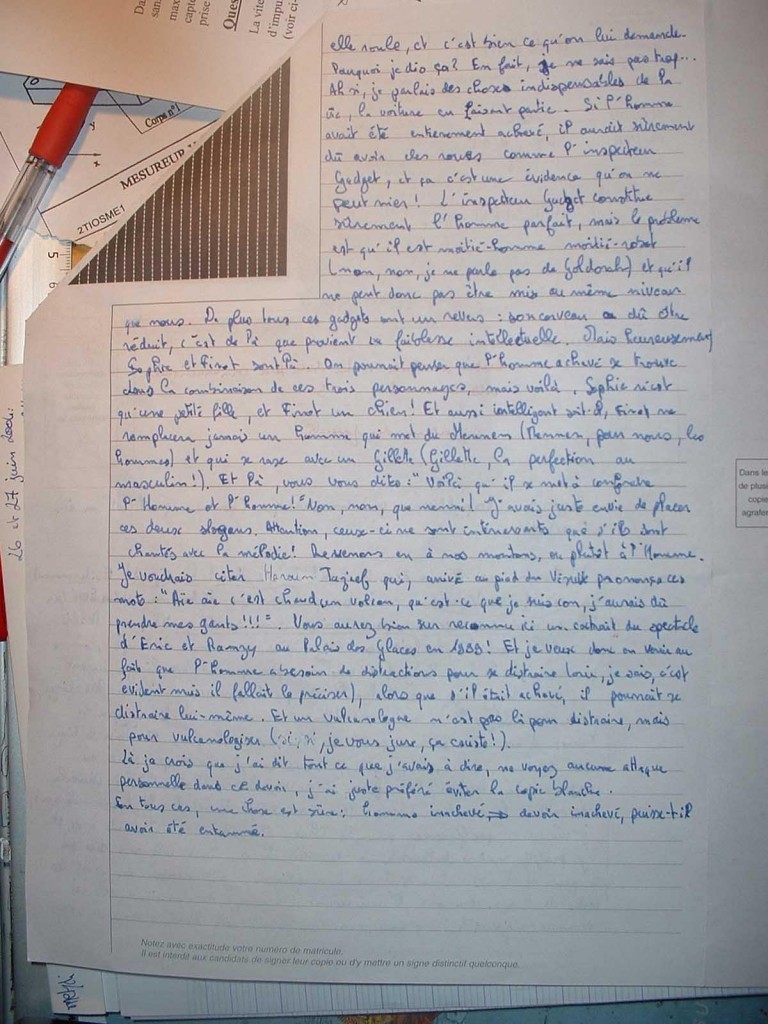 elle roule, et c'est bien ce qu'on lui demande.
Pourquoi je dis ça? En fait, je ne sais pas trop...
Ah si, je parlais des choses indispensables de la
vie, la voiture en faisant partie. Si l'homme
avait été entièrement achevé, il aurait sûrement
dû avoir des roues comme l'inspecteur
Gadget, et ça c'est une évidence qu'on ne
peut nier! L'inspecteur Gadget constitue
sûrement l'homme parfait, mais le problème
est qu'il est moitié-homme moitié-robot
(non, non, je ne parle pas de Goldorak) et qu'il
ne peut donc pas être mis au même niveau
que nous. De plus tous ces gadgets ont un revers: son cerveau a dû être
réduit, c'est de là que provient sa faiblesse intellectuelle. Mais heureusement
Sophie et Finot sont là. On pourrait penser que l'homme achevé se trouve
dans la combinaison de ces trois personnages, mais voilà, Sophie n'est
qu'une petite fille, et Finot un chien! Et aussi intelligent soit-il, Finot ne
remplacera jamais un homme qui met du Mennen (Mennen, pour nous, les
hommes) et qui se rase avec un Gillette (Gillette, la perfection au
masculin!). Et là, vous vous dites: "Voilà qu'il se met à confondre
l'Homme et l'homme!" Non, non, que nenni! J'avais juste envie de placer
ces deux slogans. Attention, ceux-ci ne sont intéressants que s'ils sont
chantés avec la mélodie! Revenons en à nos moutons, ou plutôt à l'Homme.
Je voudrais citer Haroun Tazieff qui, arrivé au pied du Vésuve prononça ces
mots: "Aïe aïe c'est chaud un volcan, qu'est-ce que je suis con, j'aurais dû
prendre mes gants!!!". Vous aurez bien sur reconnu ici un extrait du spectacle
d'Eric et Ramzy au Palais des Glaces en 1998! Et je veux donc en venir au
fait que l'homme a besoin de distractions pour se distraire (oui, je sais, c'est
évident mais il fallait le préciser), alors que s'il était achevé, il pourrait se
distraire lui-même. Et un vulcanologue n'est pas là pour distraire, mais
pour vulcanologiser (si, si, je vous jure, ça existe!).
Là je crois que j'ai dit tout ce que j'avais à dire, ne voyez aucune attaque
personnelle dans ce devoir, j'ai juste préféré éviter la copie blanche.
En tous cas, une chose est sûre: homme inachevé => devoir inachevé, puisse-t-il
avoir été entamé.
Notez avec exactitude votre numéro de matricule.
Il est interdit aux candidats de signer leur copie ou d'y mettre un signe distinctif quelconque.
Ques
La vite
d'impu
(voir ci-
Da
san
max
capte
prise
Corps n°1
y
x
MESUREUR
2TIOSME1
5
6
26 et 27 juin
Dans le
de plusi
copie
agrafer